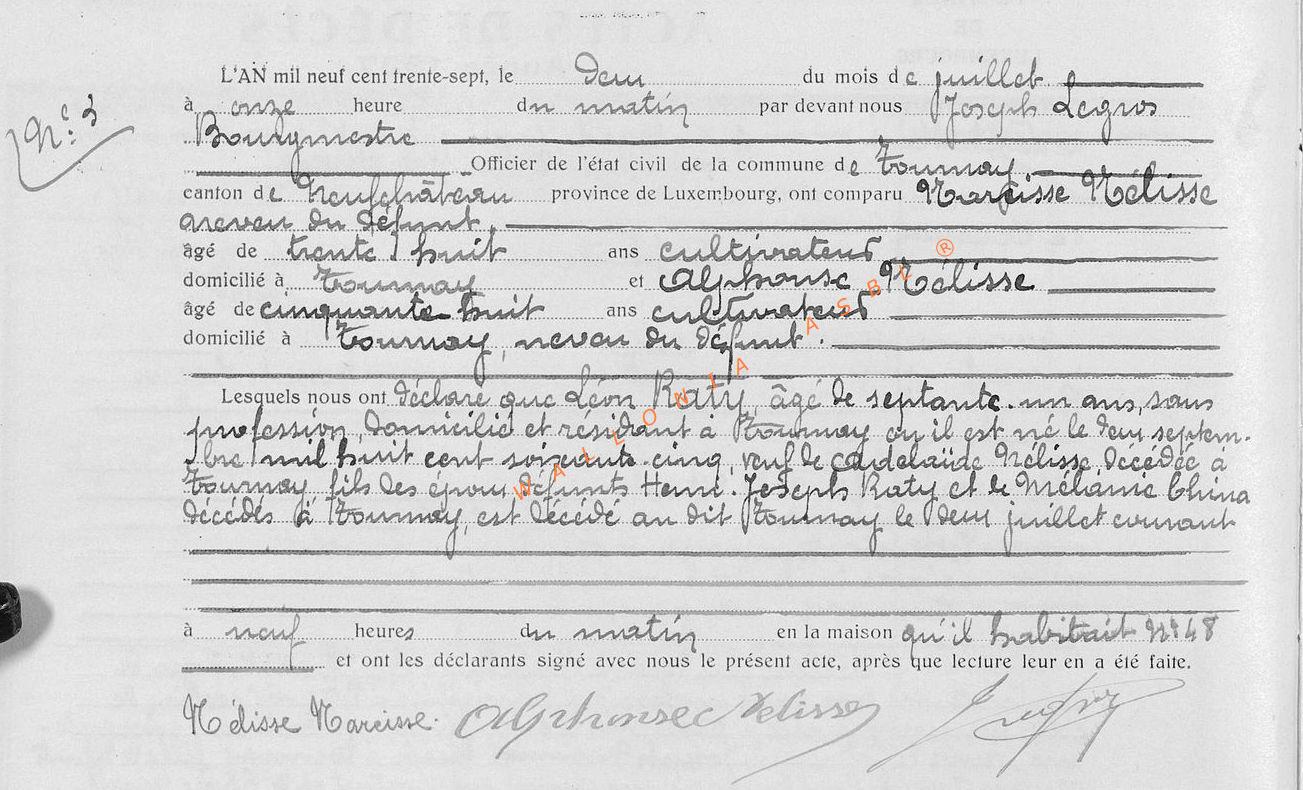 L'AN mil neuf cent trente-sept, le deux du mois de juillet
N° 3
à onze heure du matin par devant nous Joseph Legros
Bourgmestre
Officier de l'état civil de la commune de Tournay,
canton de Neufchâteau province de Luxembourg, ont comparu Narcisse Nélisse
neveu du défunt,
âgé de trente huit ans cultivateur
domicilié à Tournay et Alphonse Nélisse
âgé de cinquante huit ans cultivateur
domicilié à Tournay, neveu du défunt.
Lesquels nous ont déclaré que Léon Raty, âgé de septante-un ans, sans
profession, domicilié et résidant à Tournay où il est né le deux septem-
bre mil huit cent soixante-cinq, veuf de Nélisse, décédée à
Tournay, fils des époux défunts Henri-Joseph Raty et de Mélanie China
décédés à Tournay, est décédé au dit Tournay le deux juillet courant
à neuf heures du matin en la maison qu'il habitait N° 48
et ont les déclarants signé avec nous le présent acte, après que lecture leur en a été faite.
Nélisse Narcisse. Alphonse Nelisse
WALLONIA ASBL ®